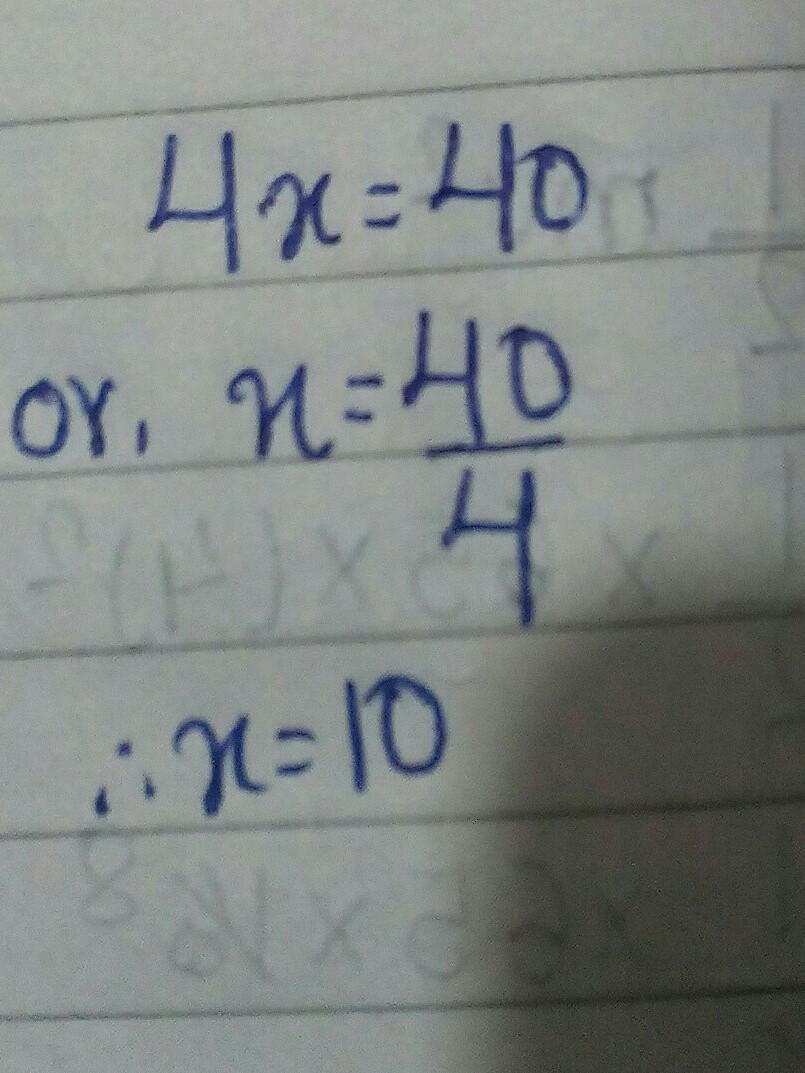 4x=40
or, x=40/4
∴x=10